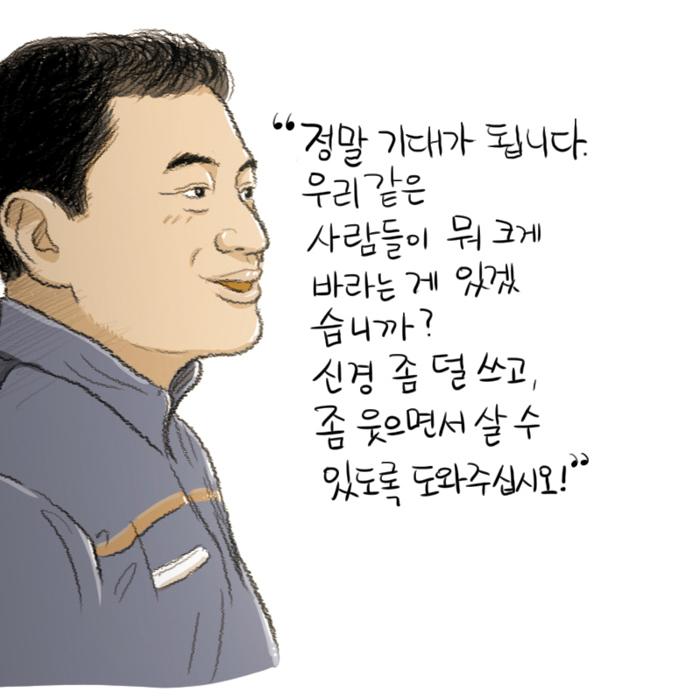 “정말 기대가 됩니다.
우리 같은
사람들이 뭐 크게
바라는 게 있겠
습니까?
신경 좀 덜 쓰고,
좀 웃으면서 살 수
있도록 도와주십시오!”